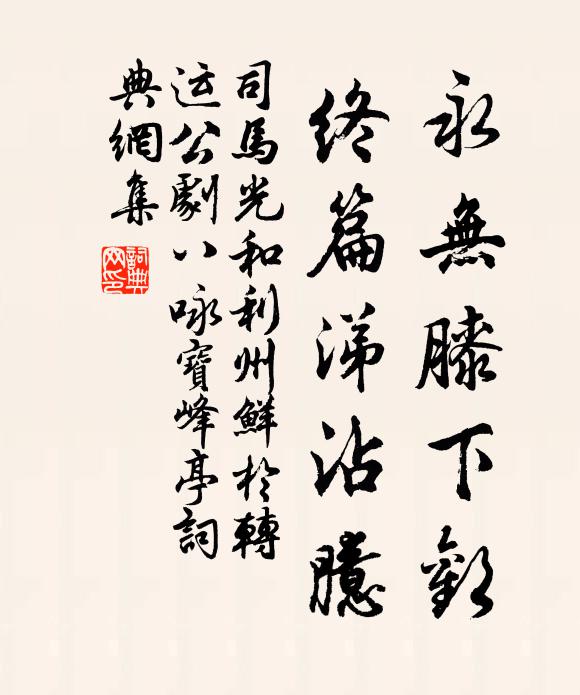 永無膝下歡
終篇涕沾臆
司馬光和利州鮮於轉
运公劇八咏寶峰亭詞
典網集
詞典网印